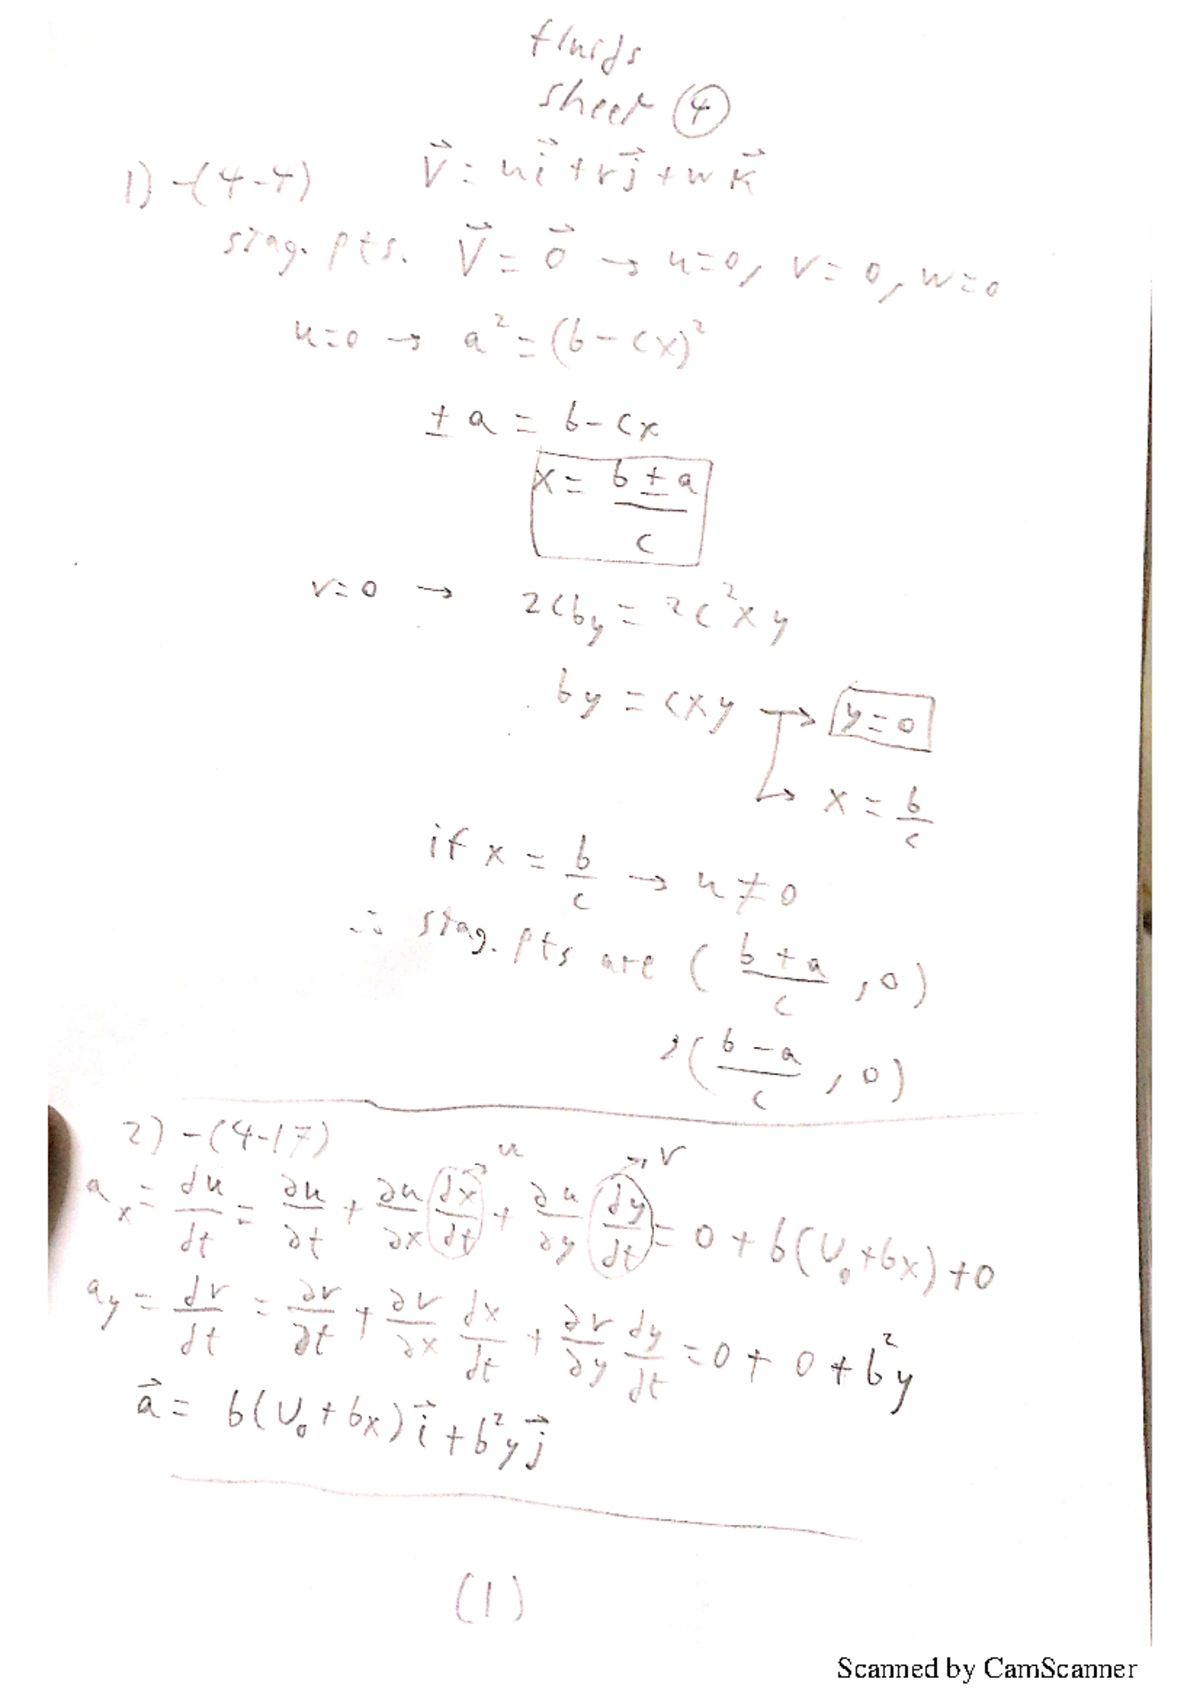 fluids
sheet (4)
1) -(4-4) V⃗ = ui⃗ + vj⃗ + wk⃗
stag. pts. V⃗ = 0⃗ → u=0, v=0, w=0
u=0 → a² = (b-cx)²
± a = b-cx
x = (b ± a)/c
v=0 → 2cby = 2c²xy
by = cxy → y=0
↳ x = b/c
if x = b/c → u ≠ 0
∴ stag. pts are ((b+a)/c , 0)
, ((b-a)/c , 0)
2) -(4-17) u v
a_x = du/dt = ∂u/∂t + ∂u/∂x dx/dt + ∂u/∂y dy/dt = 0 + b(U₀+bx) + 0
a_y = dv/dt = ∂v/∂t + ∂v/∂x dx/dt + ∂v/∂y dy/dt = 0 + 0 + b²y
a⃗ = b(U₀+bx)i⃗ + b²yj⃗
(1)
Scanned by CamScanner